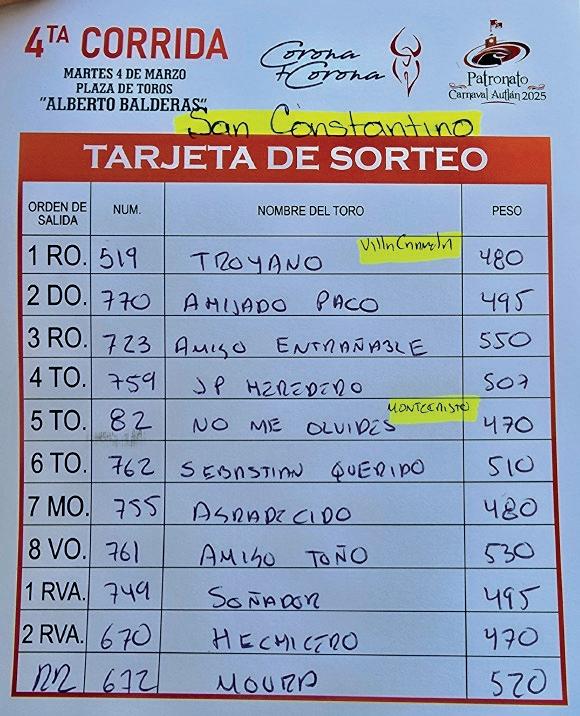 4TA CORRIDA
MARTES 4 DE MARZO
PLAZA DE TOROS
"ALBERTO BALDERAS"
Corona
Corona
Patronato
Carnaval Autlán 2025
San Constantino
TARJETA DE SORTEO
ORDEN DE SALIDA NUM. NOMBRE DEL TORO PESO
1 RO. 519 TROYANO Villa Carmela 480
2 DO. 770 AHIJADO PACO 495
3 RO. 723 AMIGO ENTRAÑABLE 550
4 TO. 759 JP HEREDERO 507
5 TO. 82 NO ME OLVIDES MONTECRISTO 470
6 TO. 762 SEBASTIAN QUERIDO 510
7 MO. 755 AGRADECIDO 480
8 VO. 761 AMIGO TOÑO 530
1 RVA. 749 SOÑADOR 495
2 RVA. 670 HECHICERO 470
RR 672 MOURA 520